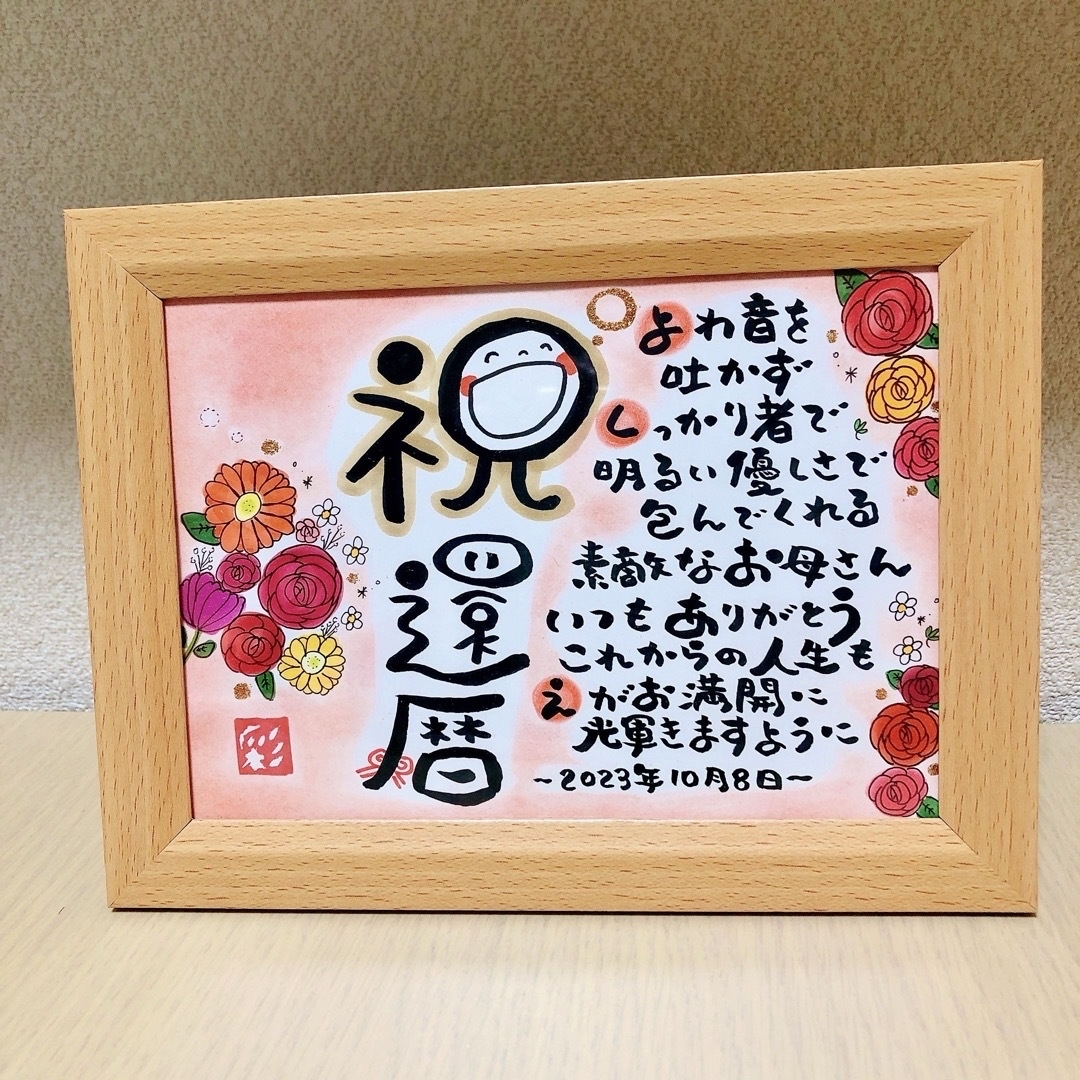 祝
還
暦
よわ音を
吐かず
しっかり者で
明るい優しさで
包んでくれる
素敵なお母さん
いつもありがとう
これからの人生も
えがお満開に
光輝きますように
~2023年10月8日~
彩